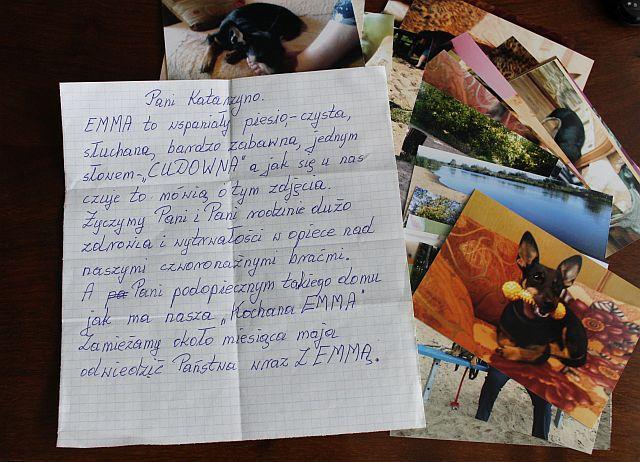 Pani Katarzyno.
EMMA to wspaniały piesio,-czysta,
słuchana, bardzo zabawna, jednym
słowem-„CUDOWNA" a jak się u nas
czuje to mówią o tym zdjęcia.
Życzymy Pani i Pani rodzinie dużo
zdrowia i wytrwałości w opiece nad
naszymi czworonażnymi braćmi.
A Pani podopiecznym takiego domu
jak ma nasza „Kochana EMMA"
Zamieżamy około miesiąca maja
odwiedzić Państwa wraz Z EMMĄ.